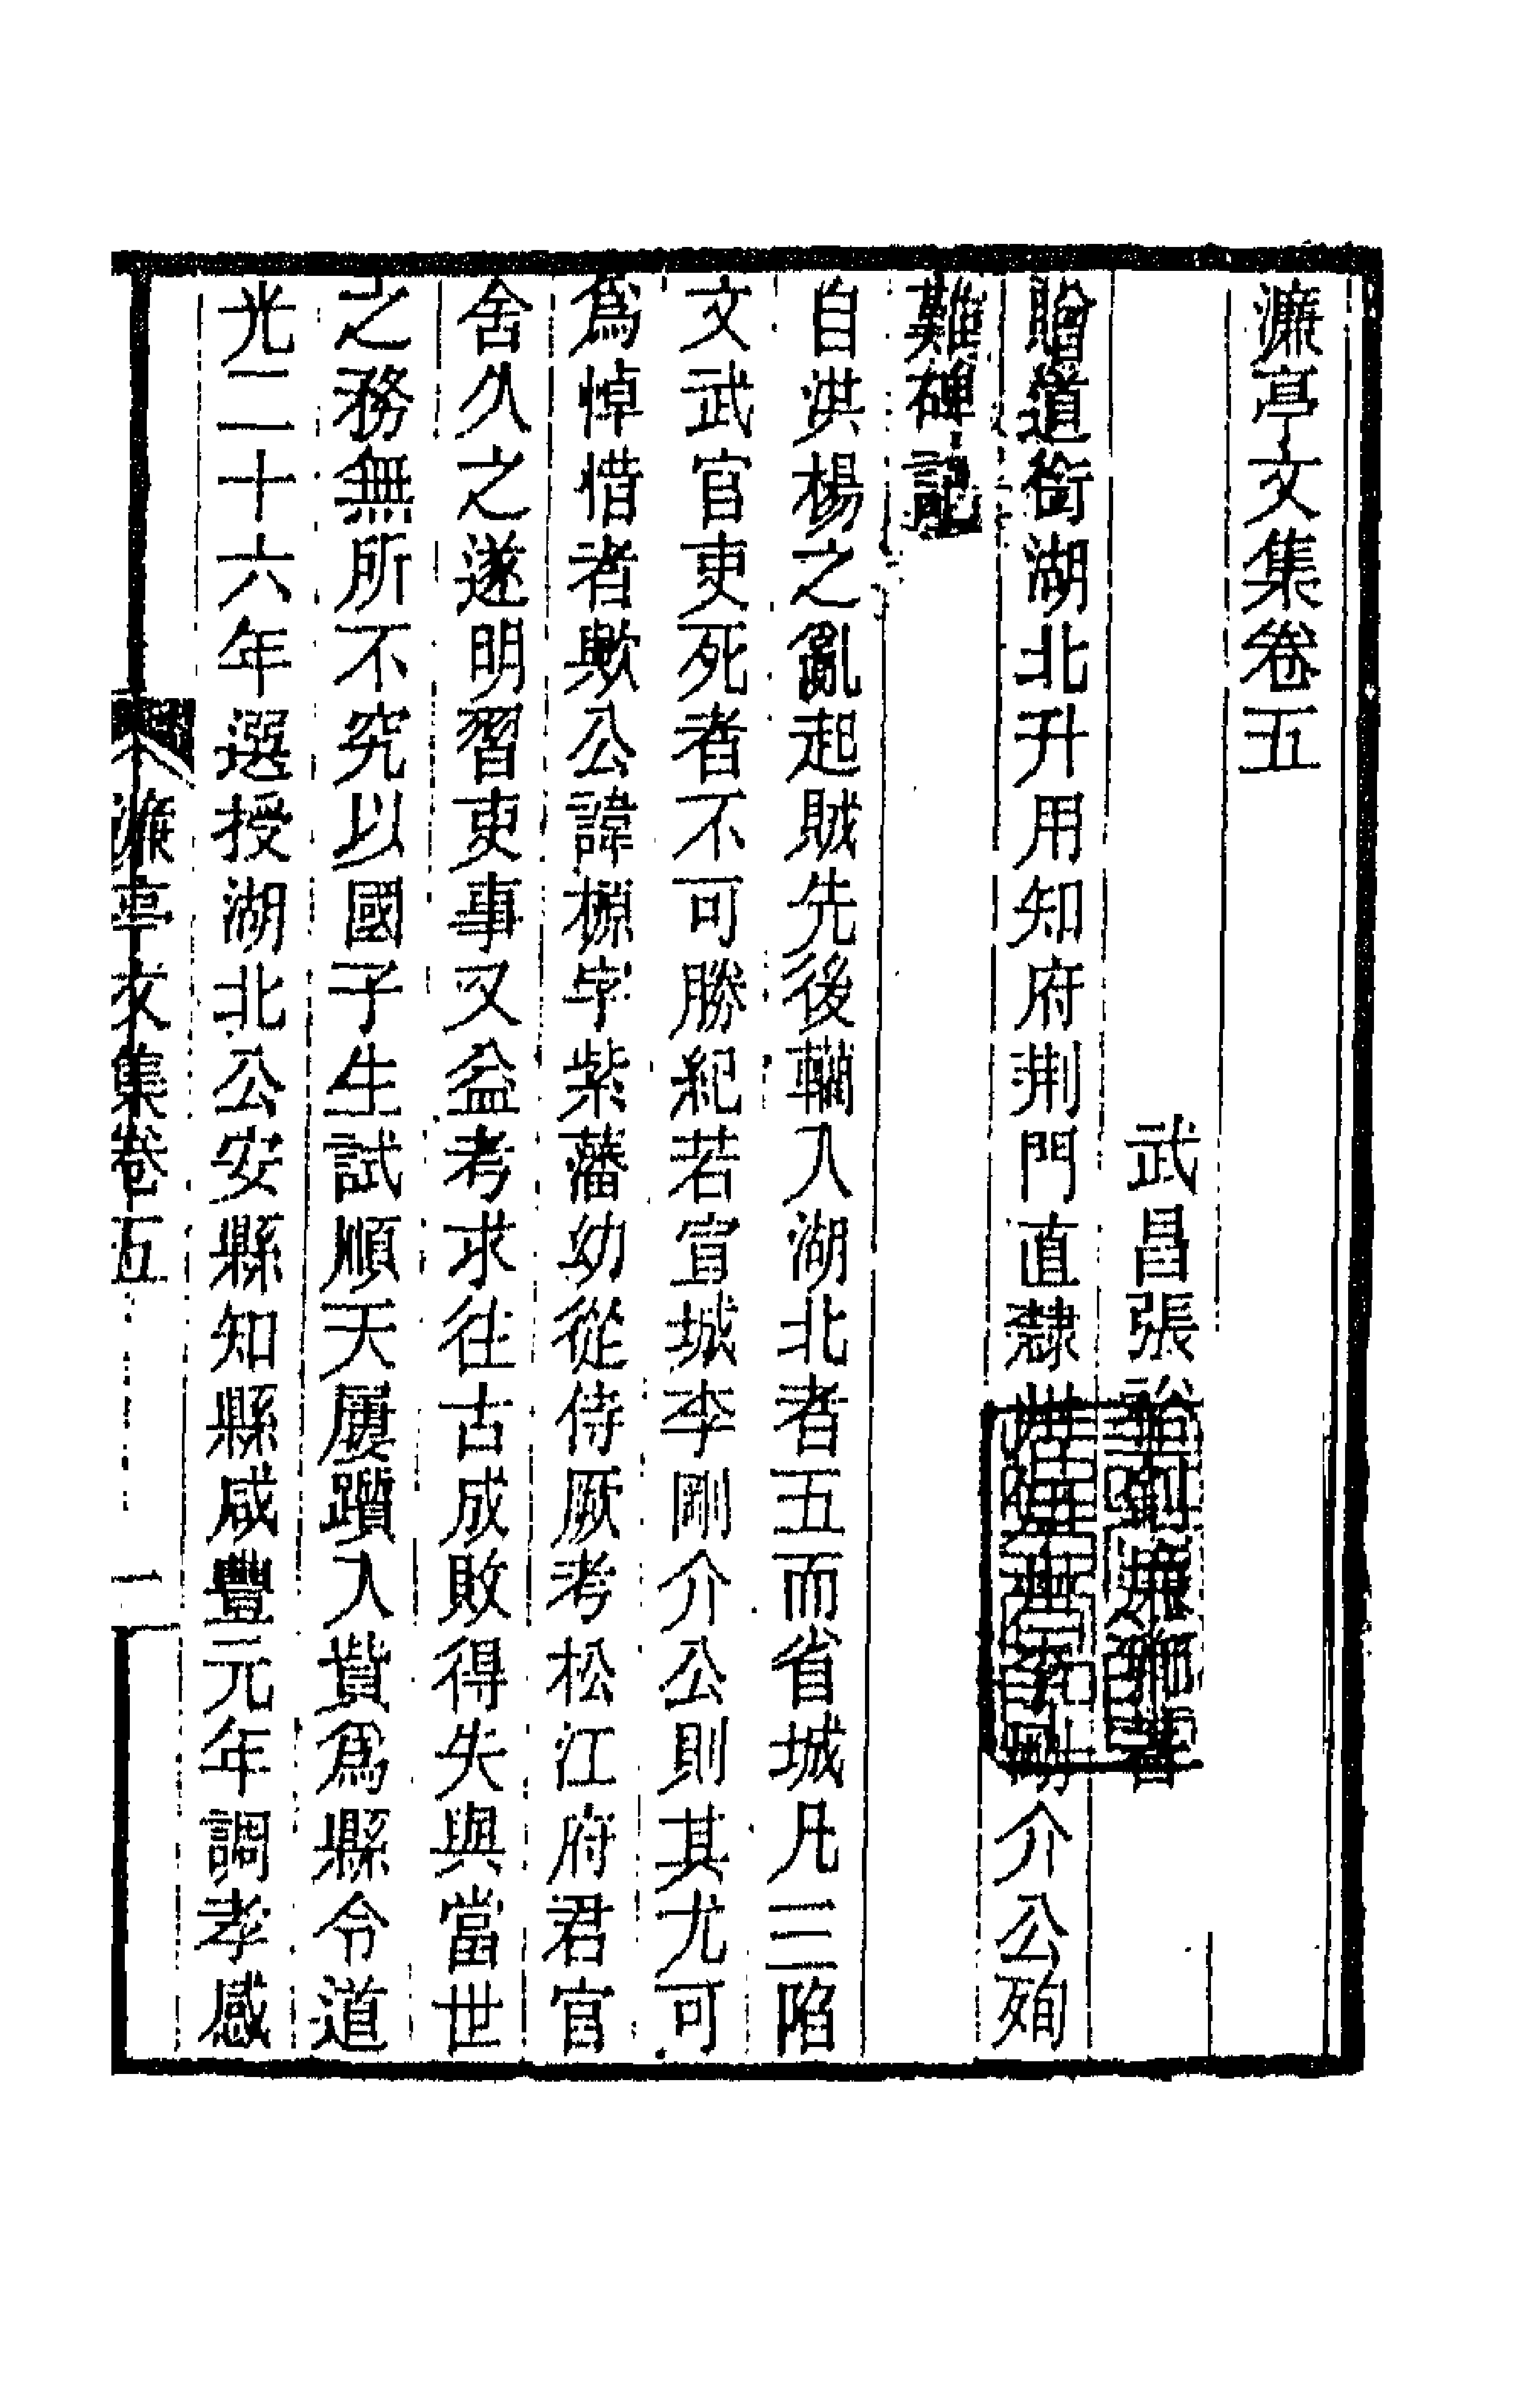 濂亭文集卷五
武昌張裕釗廉卿著
贈道銜湖北升用知府荆門直隸州知州李剛介公殉
難碑記
自洪楊之亂起賊先後轥入湖北者五而省城凡三陷
文武官吏死者不可勝紀若宣城李剛介公則其尤可
爲悼惜者歟公諱榞字紫藩幼從侍厥考松江府君官
舍久之遂明習吏事又益考求往古成敗得失與當世
之務無所不究以國子生試順天屢躓入貲爲縣令道
光二十六年選授湖北公安縣知縣咸豐元年調孝感
濂亭文集卷五 一